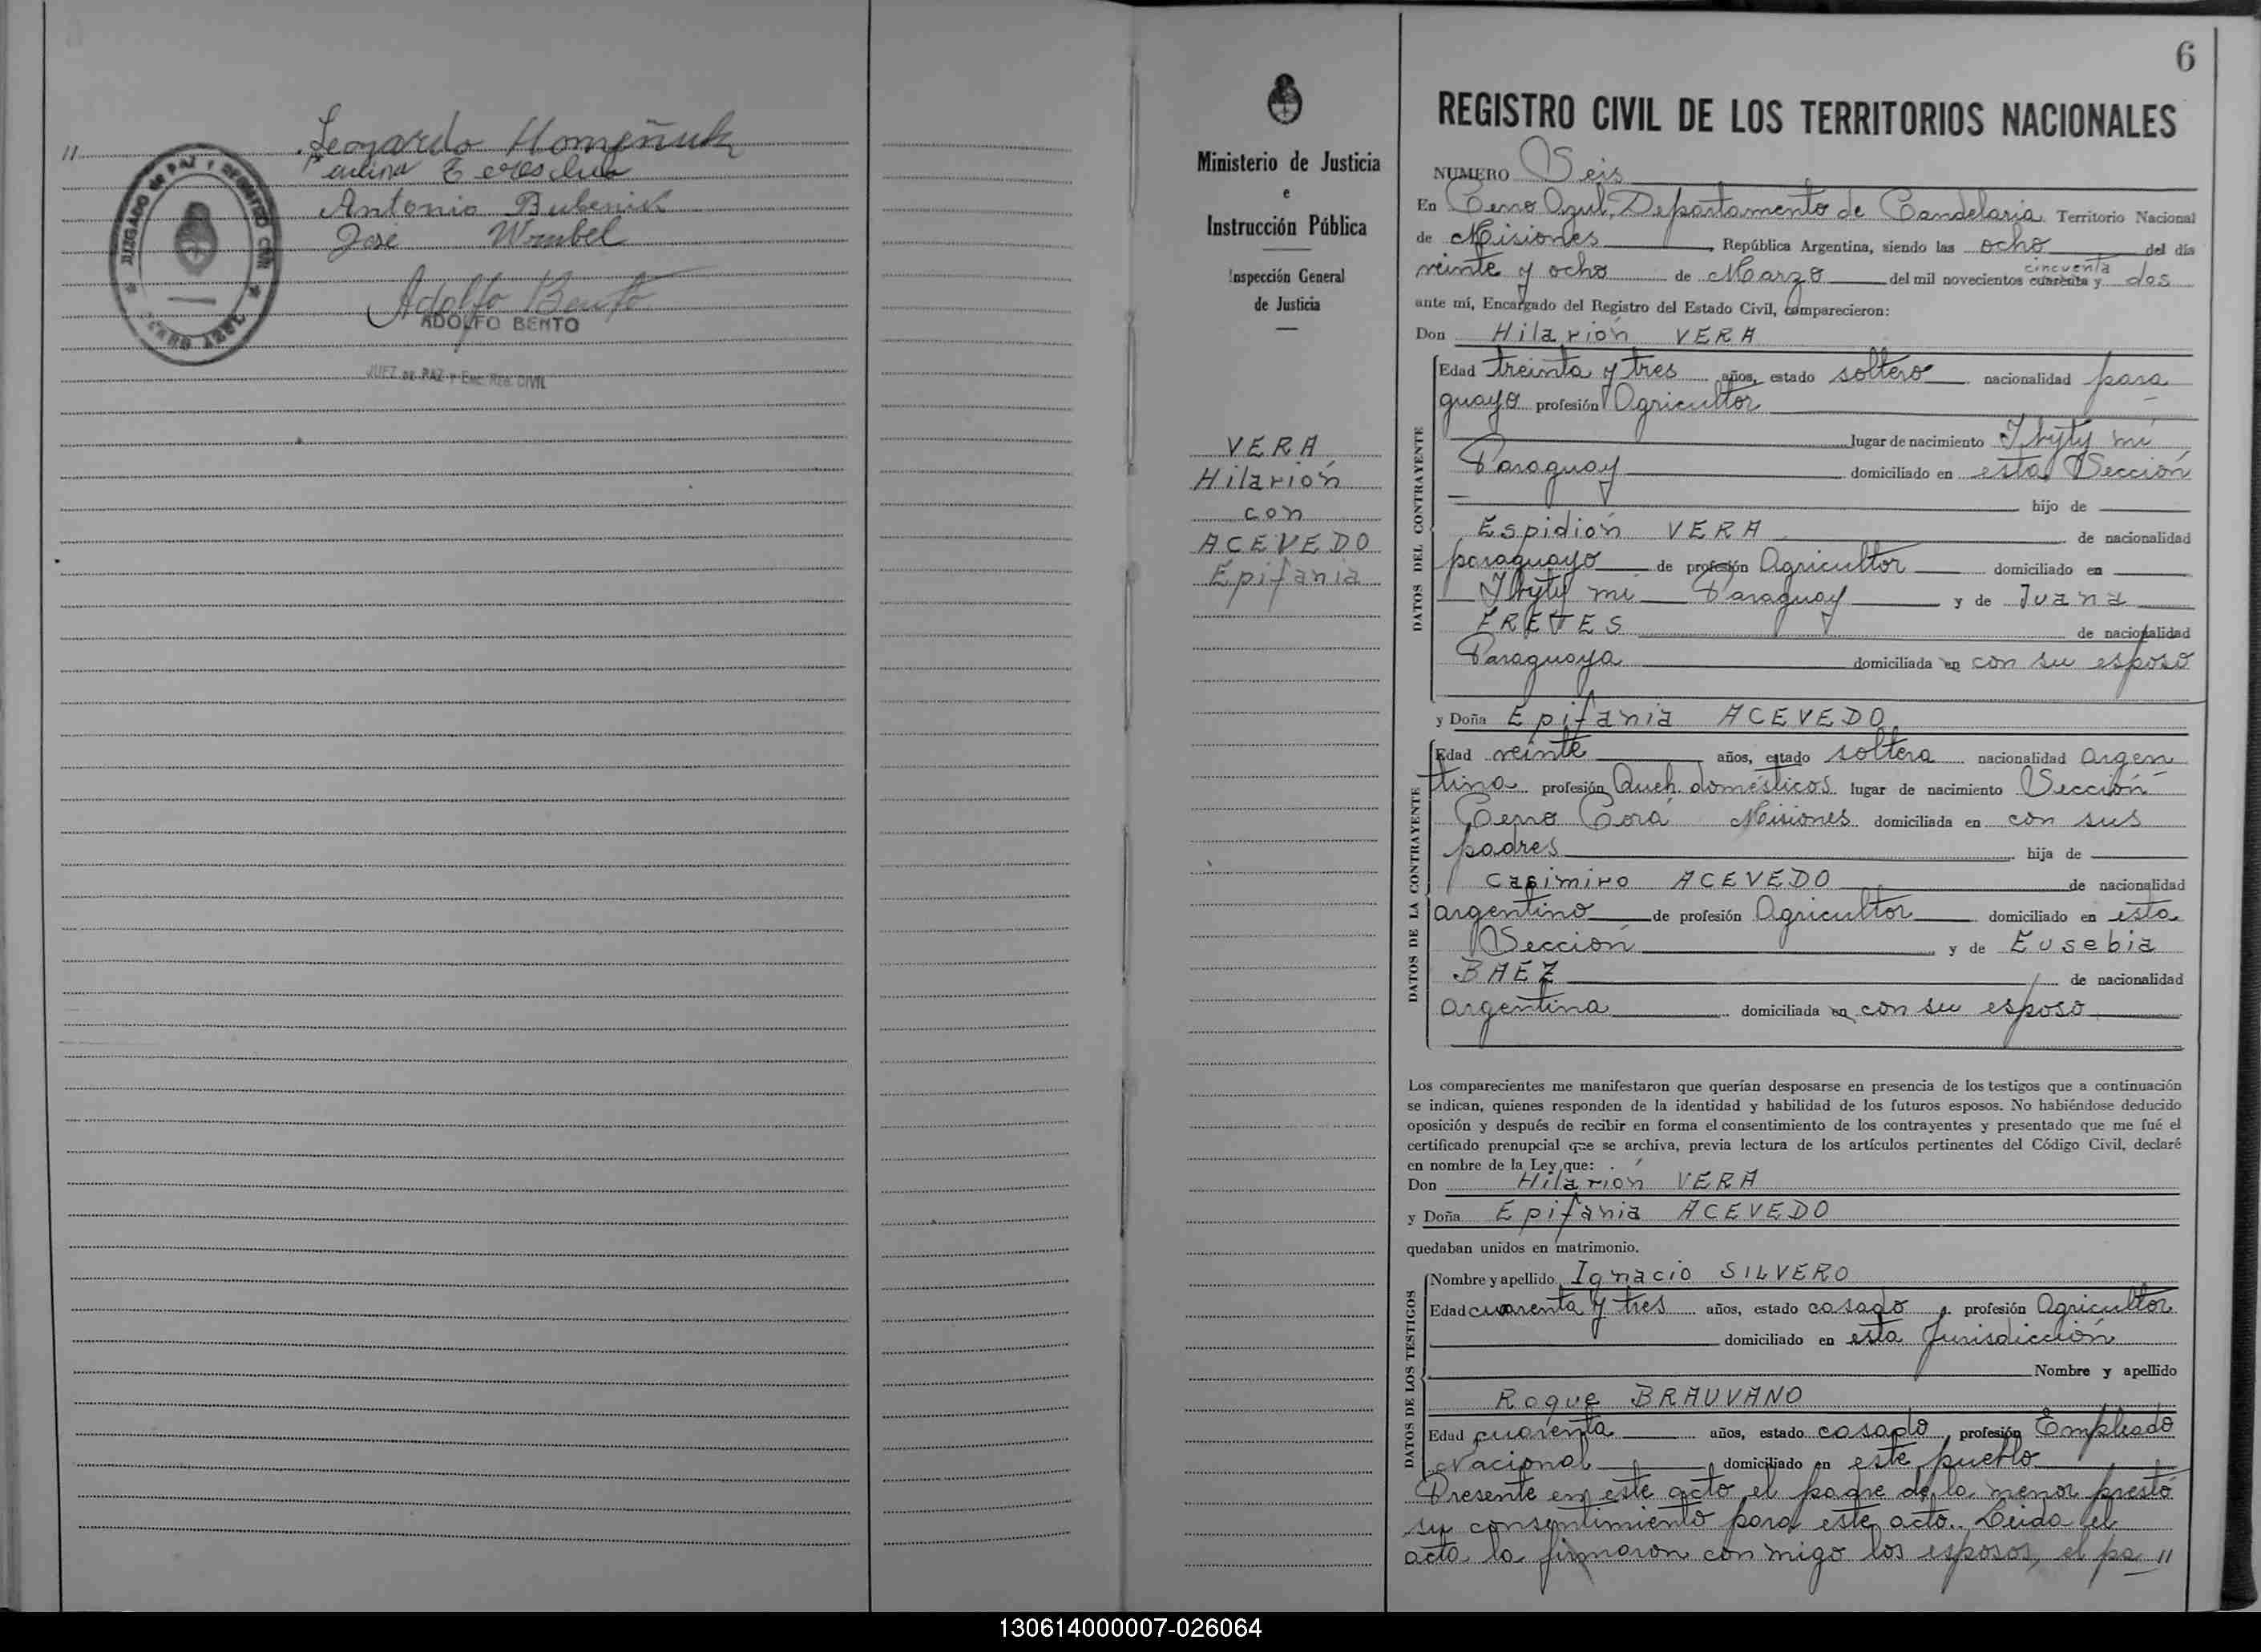 Leonardo Homeñuk
"
Antonio Bubenik
José Wrubel
Adolfo Bento
ADOLFO BENTO
JUEZ DE PAZ Y ENC. REG. CIVIL
JUZGADO DE PAZ Y REGISTRO CIVIL
CERRO AZUL
6
Ministerio de Justicia
e
Instrucción Pública
Inspección General
de Justicia
VERA
Hilarión
con
ACEVEDO
Epifania
REGISTRO CIVIL DE LOS TERRITORIOS NACIONALES
NUMERO Seis
En Cerro Azul, Departamento de Candelaria Territorio Nacional
de Misiones, República Argentina, siendo las ocho del día
veinte y ocho de Marzo del mil novecientos cuarenta cincuenta y dos
ante mí, Encargado del Registro del Estado Civil, comparecieron:
Don Hilarión VERA
DATOS DEL CONTRAYENTE
Edad treinta y tres años, estado soltero nacionalidad para
guayo profesión Agricultor
lugar de nacimiento Ybyty mí
Paraguay domiciliado en esta Sección
hijo de
Espidión VERA de nacionalidad
paraguayo de profesión Agricultor domiciliado en
Ybyty mí Paraguay y de Juana
FRETES de nacionalidad
Paraguaya domiciliada en con su esposo
y Doña Epifania ACEVEDO
DATOS DE LA CONTRAYENTE
Edad veinte años, estado soltera nacionalidad argen
tina profesión Queh. domésticos lugar de nacimiento Sección
Cerro Corá Misiones domiciliada en con sus
padres hija de
Casimiro ACEVEDO de nacionalidad
argentino de profesión Agricultor domiciliado en esta
Sección y de Eusebia
BAEZ de nacionalidad
argentina domiciliada en con su esposo
Los comparecientes me manifestaron que querían desposarse en presencia de los testigos que a continuación
se indican, quienes responden de la identidad y habilidad de los futuros esposos. No habiéndose deducido
oposición y después de recibir en forma el consentimiento de los contrayentes y presentado que me fué el
certificado prenupcial que se archiva, previa lectura de los artículos pertinentes del Código Civil, declaré
en nombre de la Ley que:
Don Hilarión VERA
y Doña Epifania ACEVEDO
quedaban unidos en matrimonio.
DATOS DE LOS TESTIGOS
Nombre y apellido Ignacio SILVERO
Edad cuarenta y tres años, estado casado, profesión Agricultor
domiciliado en esta Jurisdicción
Nombre y apellido
Roque BRAUVANO
Edad cuarenta años, estado casado, profesión Empleado
Nacional domiciliado en este pueblo
Presente en este acto el padre de la menor prestó
su consentimiento para este acto. Leida el
acta la firmaron con migo los esposos, el pa "
130614000007-026064